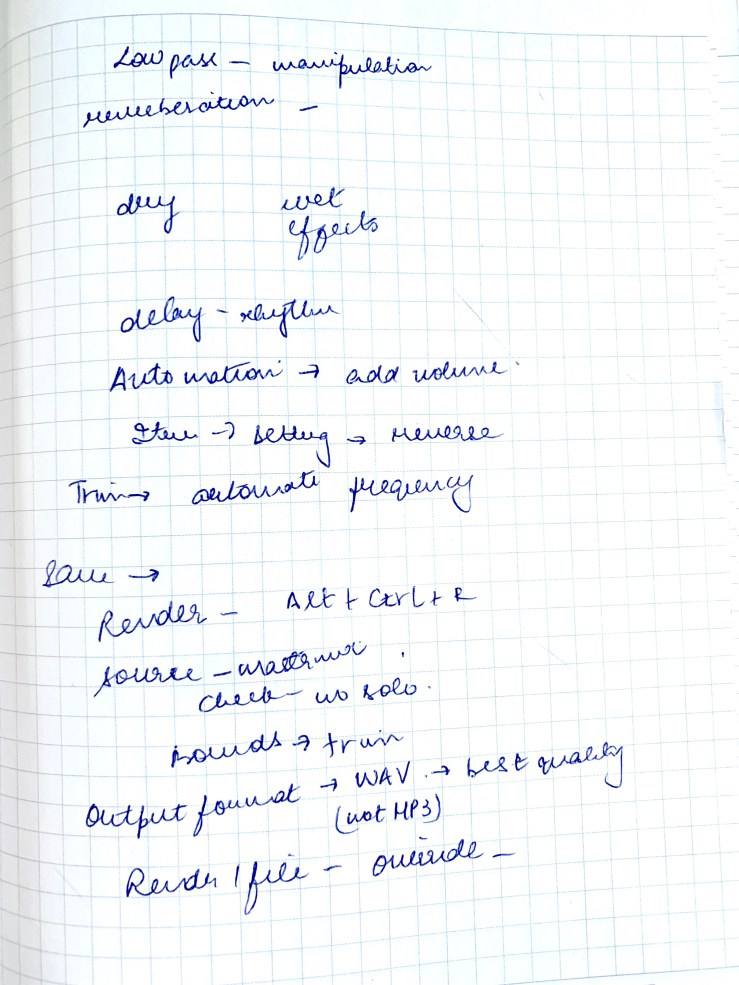 Low pass – manipulation
reverberation –
dry wet
effects
delay – rhythm
Automation → add volume.
Item → setting → reverse
→ automate frequency
Save →
Render – Alt + Ctrl + R
Source – master mix
Check – no solo.
Bounds →
Output format → WAV → best quality
(not MP3)
Render 1 file –